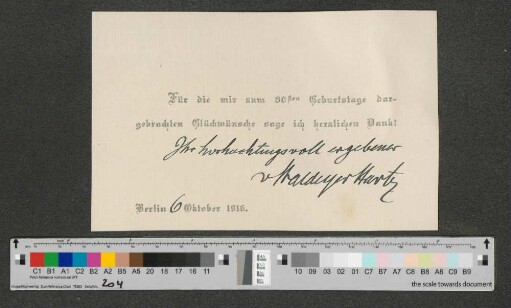 Für die mir zum 80sten Geburtstage dar-
gebrachten Glückwünsche sage ich herzlichen Dank!
Ihr hochachtungsvoll ergebener
v Waldeyer Hartz
Berlin 6 Oktober 1916.
C1 B1 A1 C2 A2 B5 A5 20 18 17 16 11
10 09 03 02 01 C7 B7 A7 C8 A8 C9 B9
the scale towards document
204